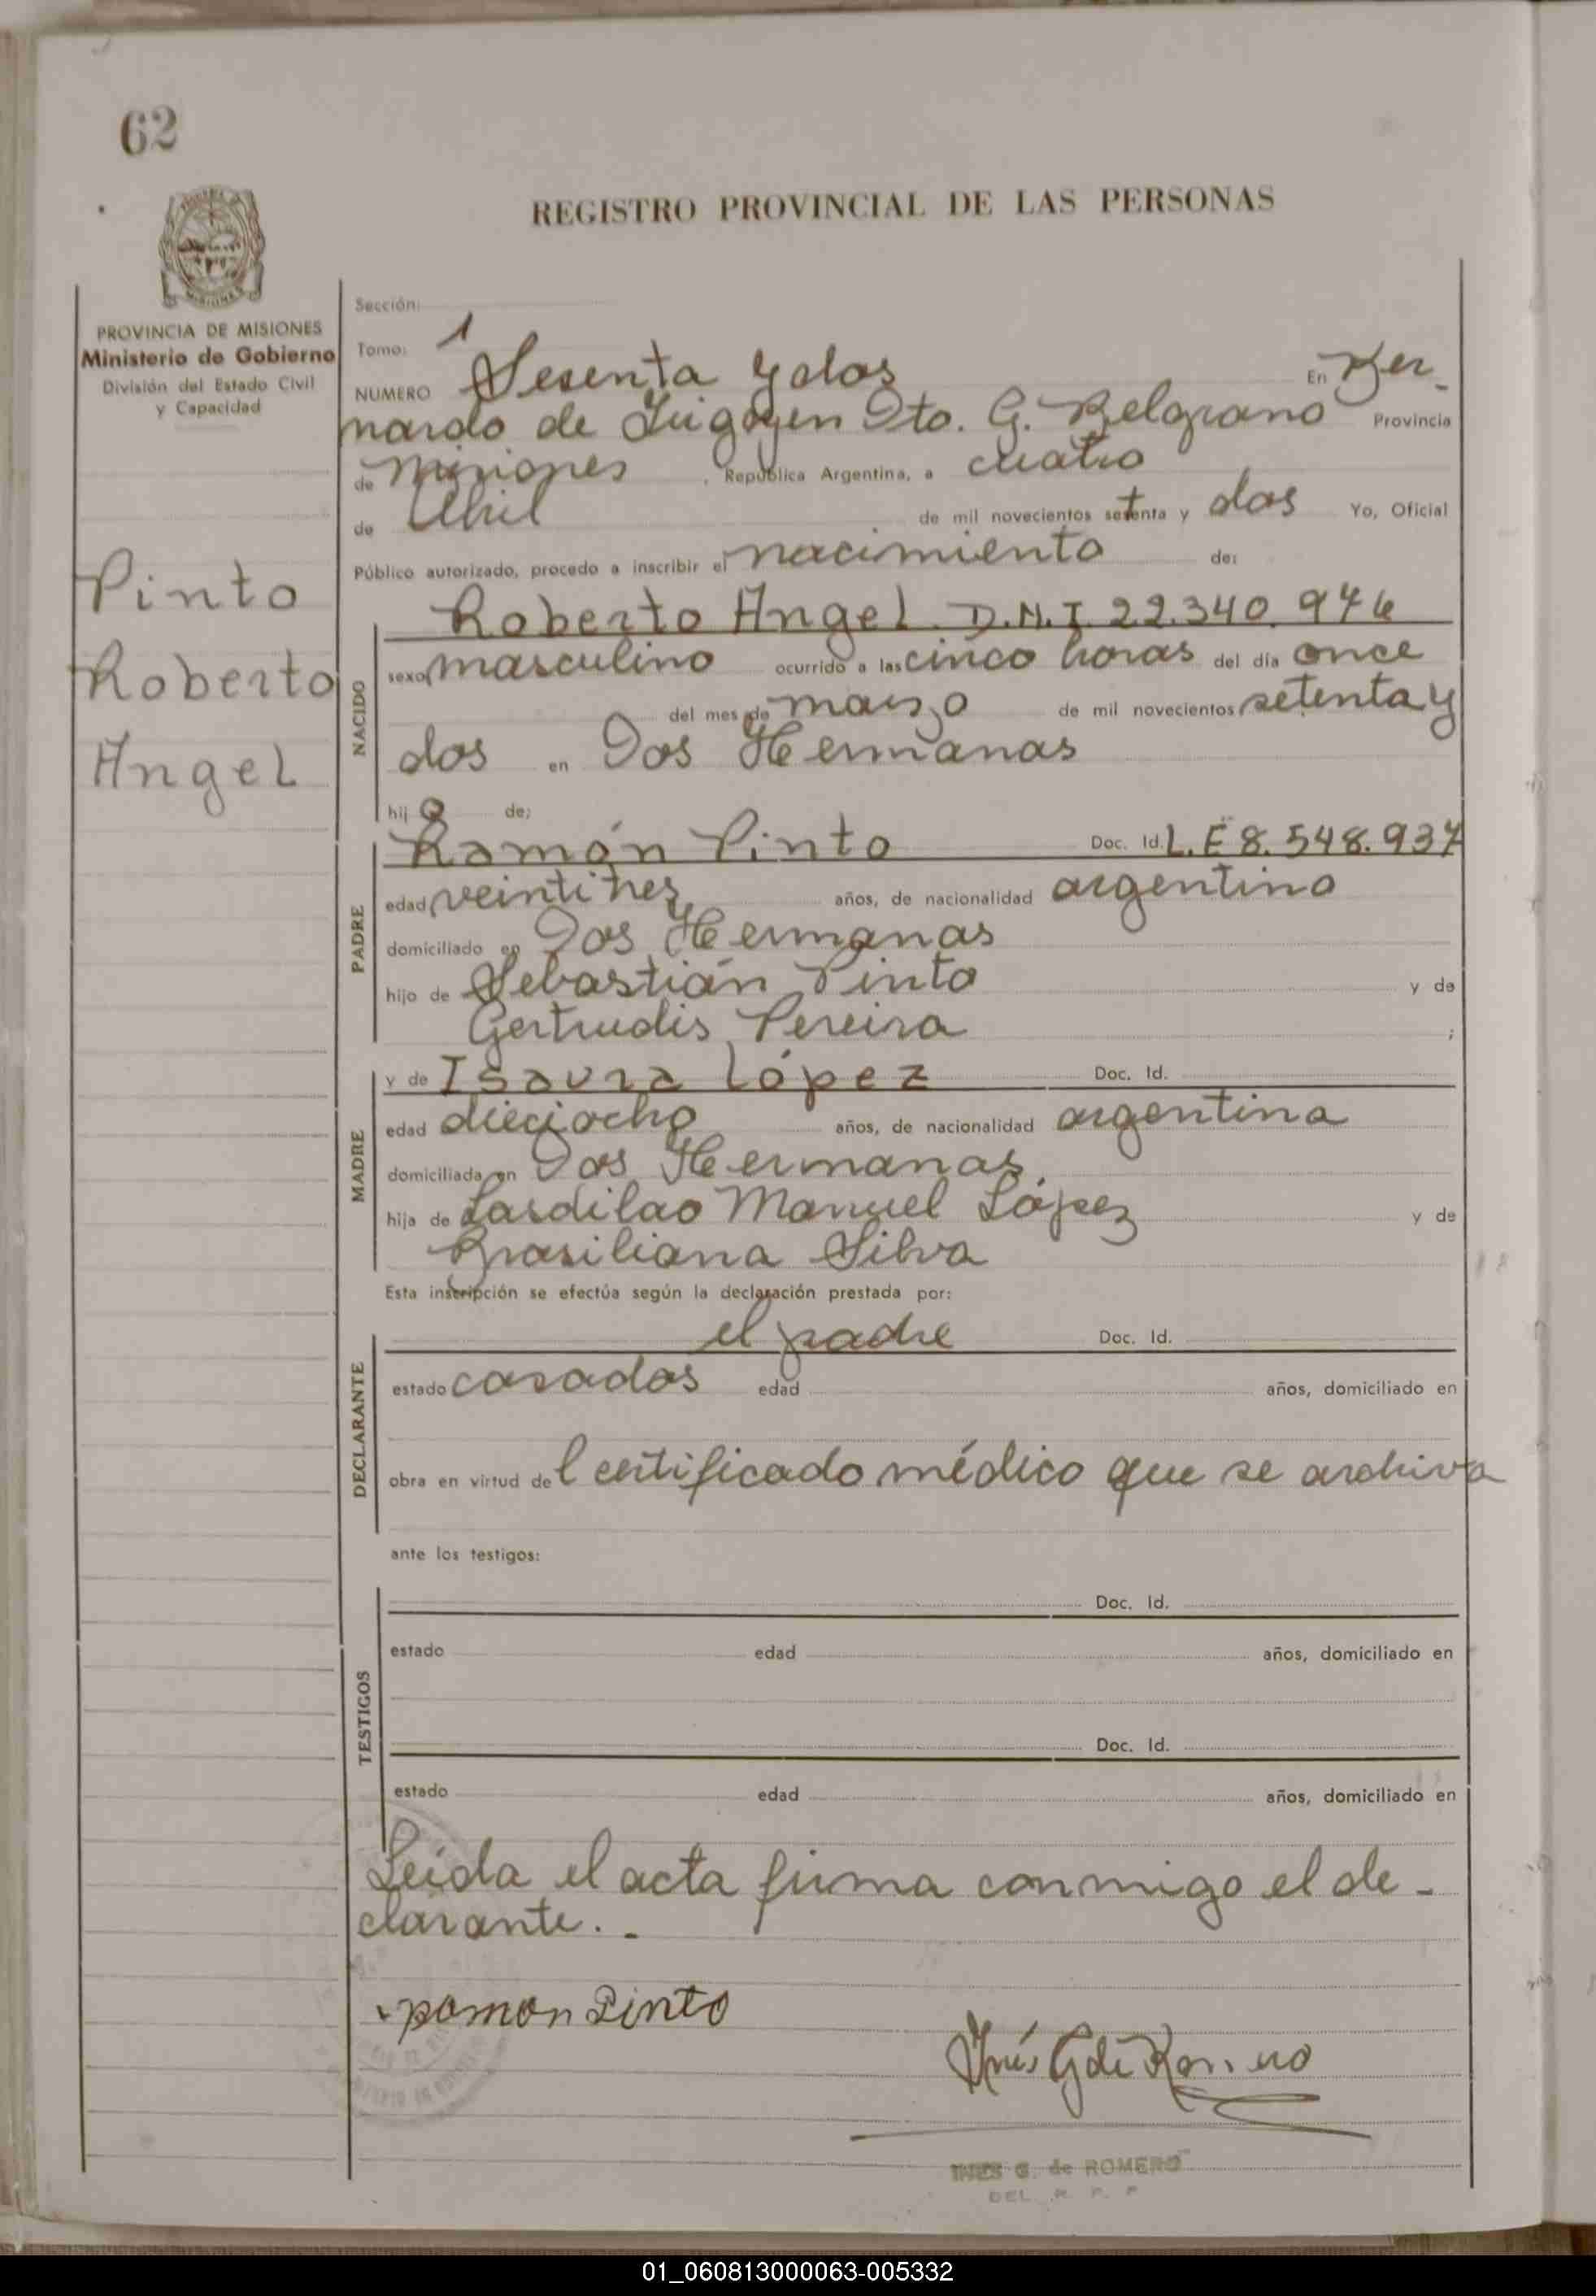 62
REGISTRO PROVINCIAL DE LAS PERSONAS
PROVINCIA DE MISIONES
Ministerio de Gobierno
División del Estado Civil
y Capacidad
Pinto
Roberto
Angel
Sección:
Tomo: 1
NUMERO Sesenta y dos En Ber-
nardo de Irigoyen Dto. G. Belgrano Provincia
de Misiones, República Argentina, a cuatro
de Abril de mil novecientos setenta y dos Yo, Oficial
Público autorizado, procedo a inscribir el nacimiento de:
NACIDO
Roberto Angel D.N.I 22.340.974
sexo masculino ocurrido a las cinco horas del día once
del mes de marzo de mil novecientos setenta y
dos en Dos Hermanas
hijo de;
PADRE
Ramón Pinto Doc. Id. L.E 8.548.937
edad veintitres años, de nacionalidad argentino
domiciliado en Dos Hermanas
hijo de Sebastián Pinto y de
Gertrudis Pereira ;
MADRE
y de Isaura López Doc. Id.
edad dieciocho años, de nacionalidad argentina
domiciliada en Dos Hermanas
hija de Lasdilao Manuel López y de
Brasiliana Silva
Esta inscripción se efectúa según la declaración prestada por:
DECLARANTE
el padre Doc. Id.
estado casados edad años, domiciliado en
obra en virtud del certificado médico que se archiva
ante los testigos:
TESTIGOS
Doc. Id.
estado edad años, domiciliado en
Doc. Id.
estado edad años, domiciliado en
Leída el acta firma conmigo el de-
clarante.-
ramon Pinto
Inés G de Romero
INES G. de ROMERO
DEL. R. P. P
01_060813000063-005332